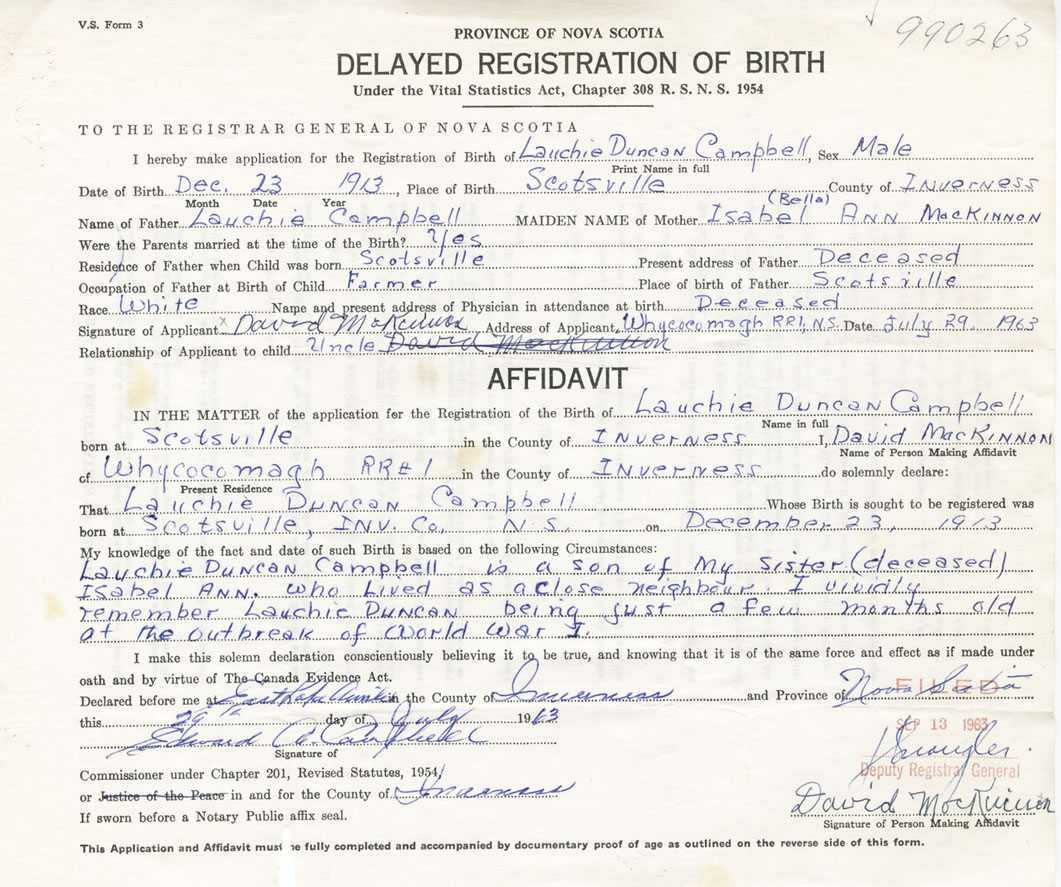 V.S. Form 3
990263
PROVINCE OF NOVA SCOTIA
DELAYED REGISTRATION OF BIRTH
Under the Vital Statistics Act, Chapter 308 R. S. N. S. 1954
TO THE REGISTRAR GENERAL OF NOVA SCOTIA
I hereby make application for the Registration of Birth of Lauchie Duncan Campbell, Sex Male
Print Name in full
Date of Birth Dec. 23 1913, Place of Birth Scotsville County of Inverness
Month Date Year
(Bella)
Name of Father Lauchie Campbell MAIDEN NAME of Mother Isabel Ann MacKinnon
Were the Parents married at the time of the Birth? Yes
Residence of Father when Child was born Scotsville Present address of Father Deceased
Occupation of Father at Birth of Child Farmer Place of birth of Father Scotsville
Race White Name and present address of Physician in attendance at birth Deceased
Signature of Applicant x David MacKinnon Address of Applicant, Whycocomagh RR1, N.S. Date July 29, 1963
Relationship of Applicant to child Uncle David MacKinnon
AFFIDAVIT
IN THE MATTER of the application for the Registration of the Birth of Lauchie Duncan Campbell
Name in full
born at Scotsville in the County of Inverness I, David MacKinnon
Name of Person Making Affidavit
of Whycocomagh RR#1 in the County of Inverness do solemnly declare:
Present Residence
That Lauchie Duncan Campbell Whose Birth is sought to be registered was
born at Scotsville, Inv. Co., N.S. on December 23, 1913
My knowledge of the fact and date of such Birth is based on the following Circumstances:
Lauchie Duncan Campbell is a son of my sister (deceased)
Isabel Ann. who lived as a close neighbour. I vividly
remember Lauchie Duncan being just a few months old
at the outbreak of World War I.
I make this solemn declaration conscientiously believing it to be true, and knowing that it is of the same force and effect as if made under
oath and by virtue of The Canada Evidence Act.
Declared before me at East Lake Ainslie in the County of Inverness and Province of Nova Scotia
FILED
this 29th day of July 1963
SEP 13 1963
Edward A. Campbell
Signature of
Deputy Registrar General
Commissioner under Chapter 201, Revised Statutes, 1954,
or Justice of the Peace in and for the County of Inverness
David MacKinnon
If sworn before a Notary Public affix seal.
Signature of Person Making Affidavit
This Application and Affidavit must be fully completed and accompanied by documentary proof of age as outlined on the reverse side of this form.